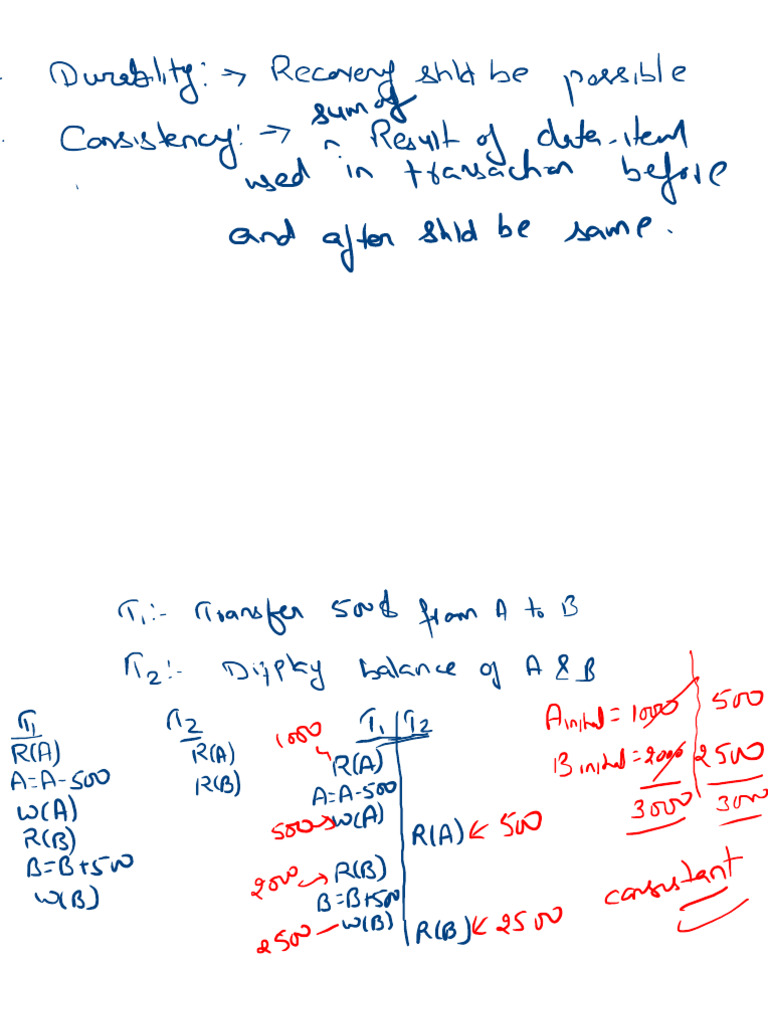 Durability: → Recovery shld be possible
sum of
Consistency: → Result of data-item
used in transaction before
and after shld be same.
T1:- Transfer 500$ from A to B
T2:- Display balance of A & B
T1 T2
R(A) R(A)
A=A-500 R(B)
W(A)
R(B)
B=B+500
W(B)
T1 T2
1000
R(A)
A=A-500
500 → W(A)
R(A) ← 500
2000 → R(B)
B=B+500
2500 – W(B)
R(B) ← 2500
A initial = 1000 500
B initial = 2000 2500
3000 3000
consistant